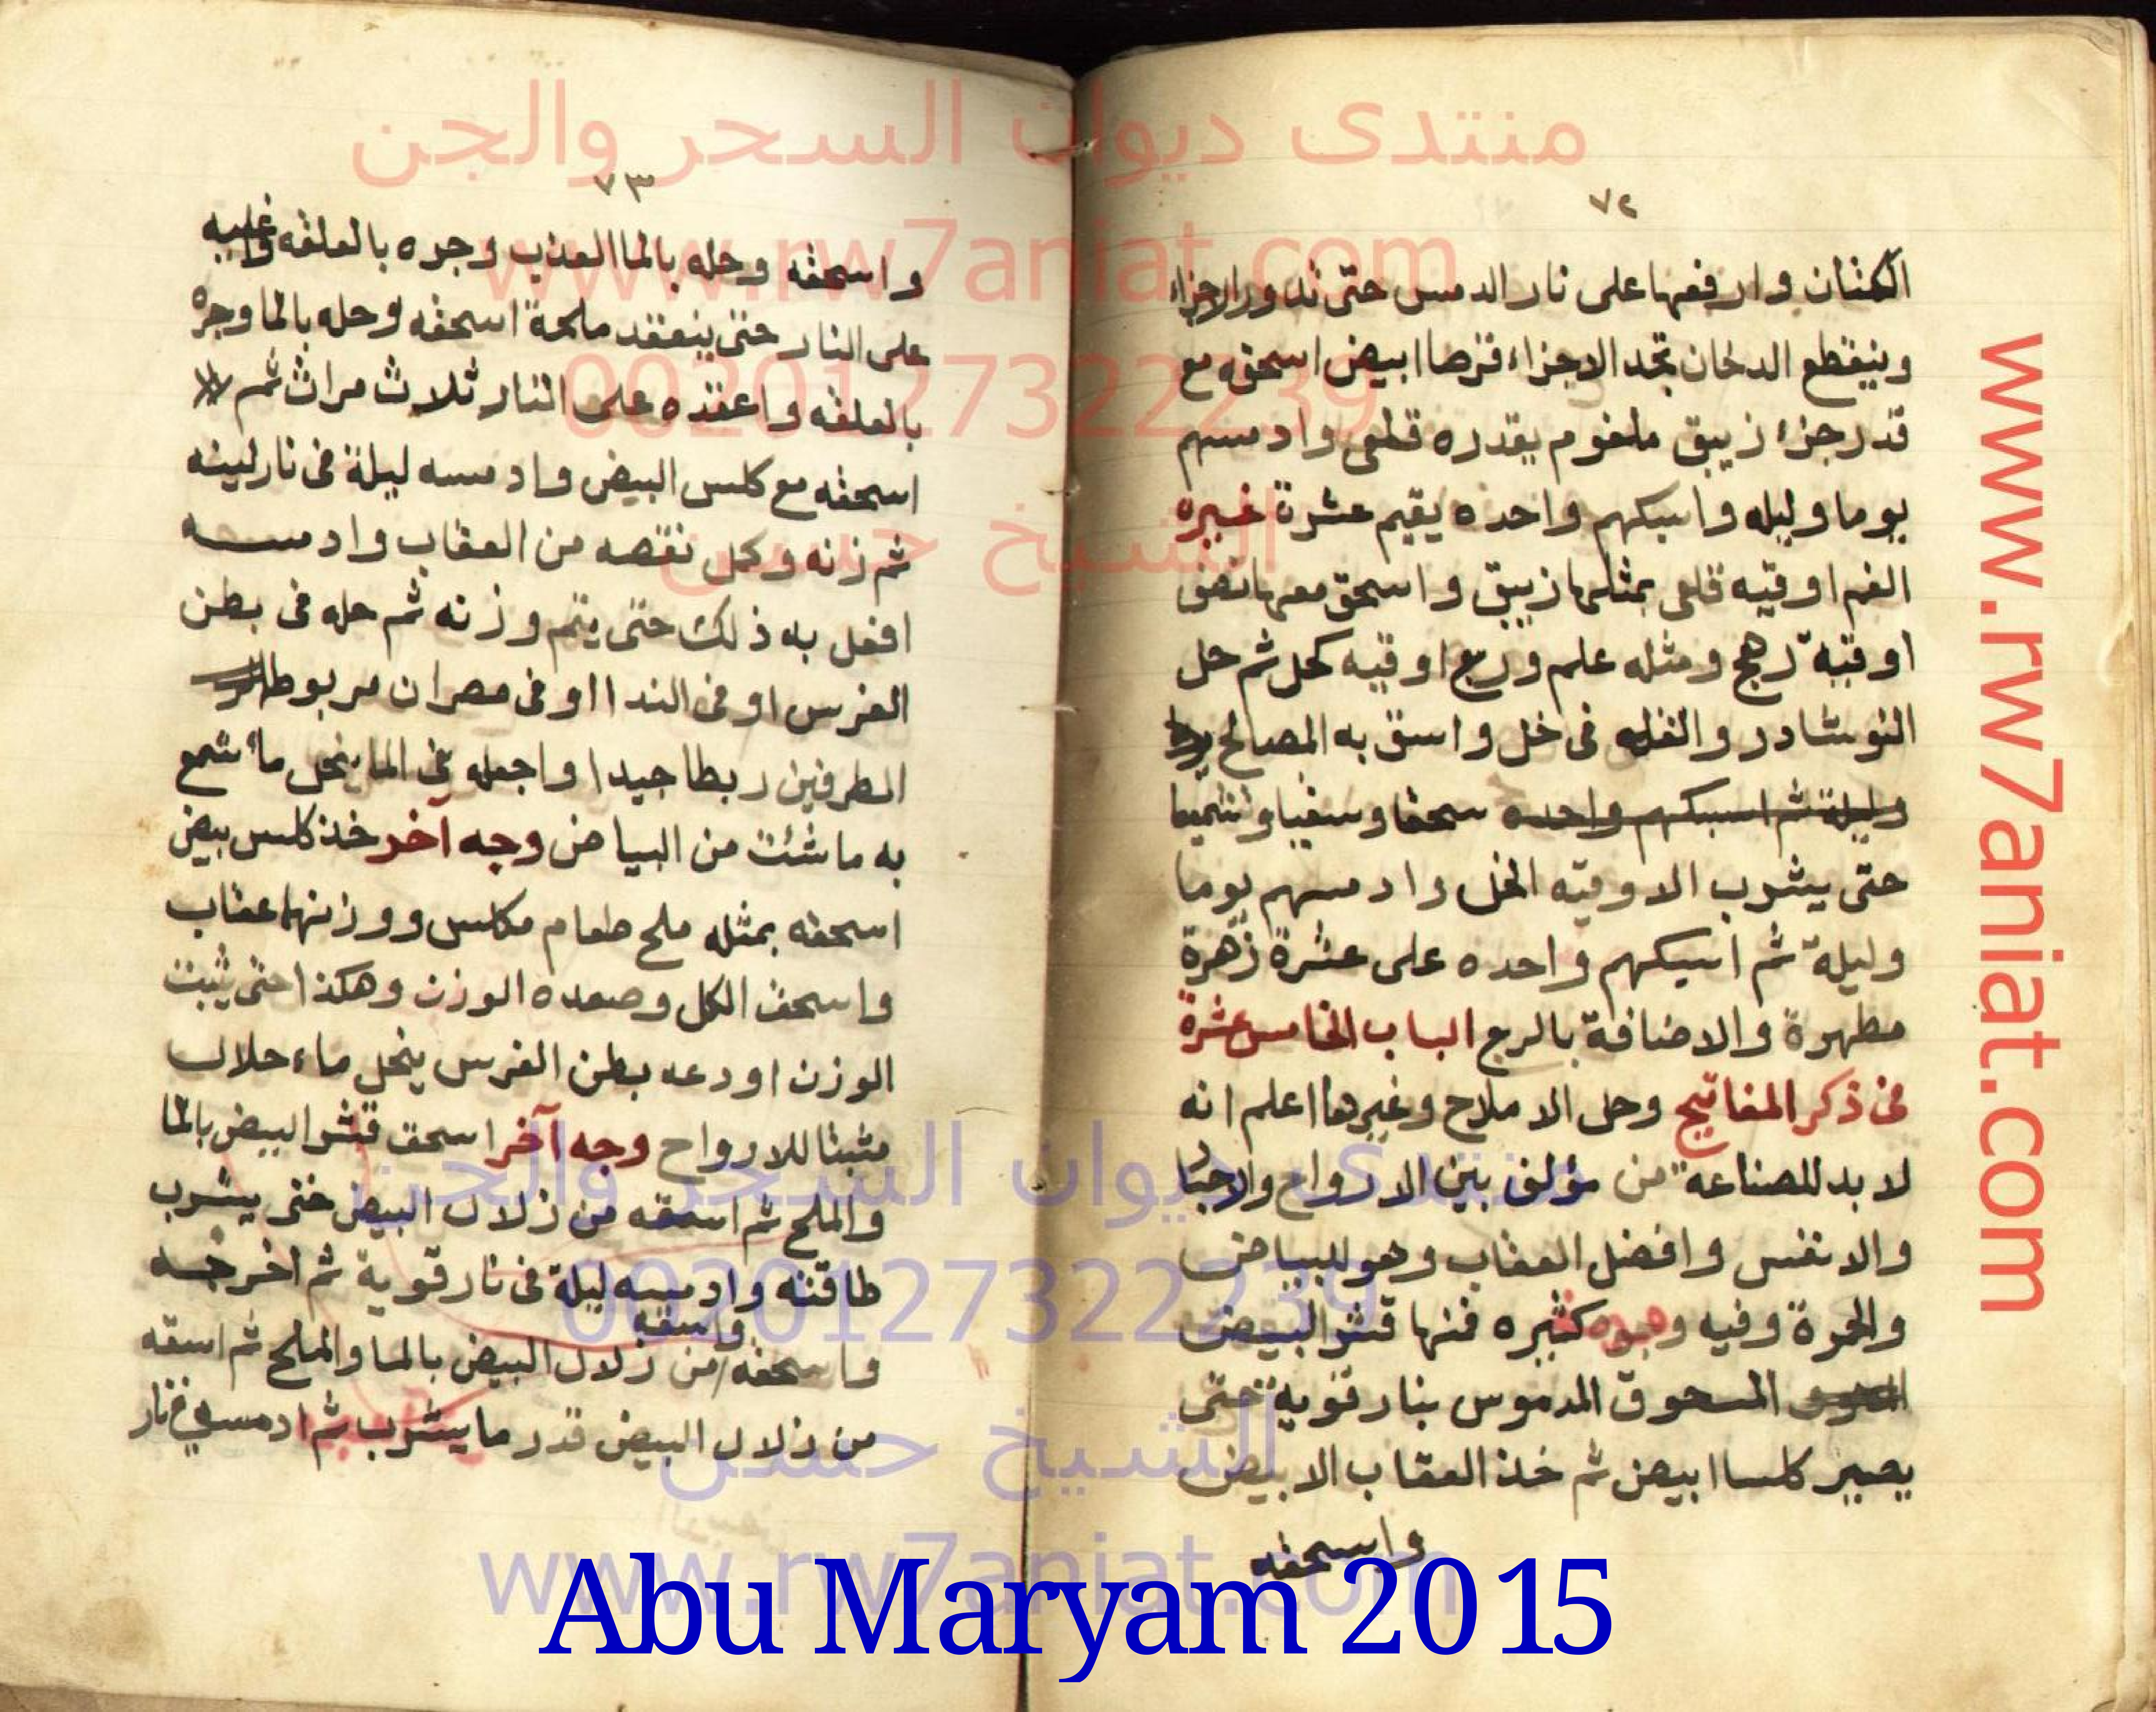 منتدى ديوان السحر والجن
www.rw7aniat.com
00201127322239
الشيخ حسن
www.rw7aniat.com
٧٢
الكتان وارفعها على نار الدمس حتى تدور الاجزاء
وينقطع الدخان تجد الاجزاء قرصا ابيض اسحقه مع
قدر جزء زيبق ملغوم بقدره قلعى وادمسهم
يوما وليله واسبكهم واحده يقيم عشرة غيره
الغم اوقيه قلعى بمثلها زيبق واسحق معها نصف
اوقية رهج ومثله علم وربع اوقيه كحل ثم حل
النوشادر والقله فى خل واسق به المصالح يوما
وليلة ثم اسبكهم واحده سحقا وسقيا وتشميعا
حتى يشرب الاوقيه الخل وادمسهم يوما
وليلة ثم اسبكهم واحده على عشرة زهرة
مطهرة والاضافة بالرج الباب الخامس عشرة
فى ذكر المفاتيح وحل الاملاح وغيرها اعلم انه
لابد للصناعة من مؤلف بين الارواح والاجساد
والانفس وافضل العقاب وهو للبياض
والحمرة وفيه وجوه كثيره فمنها قشر البيض
المسحوق المدموس بنار قوية حتى
يصير كلسا ابيض ثم خذ العقاب الابيض
واسحقه
٧٣
واسحقه وحله بالما العذب وجره بالعلقه وغليه
على النار حتى ينعقد ملحة اسحقه وحله بالما وجره
بالعلقه واعقده على النار ثلاث مرات ثم
اسحقه مع كلس البيض وادمسه ليلة فى نار لينه
ثم زنه وكمل نقصه من العقاب وادمسه
افعل به ذلك حتى يتم وزنه ثم حله فى بطن
الفرس او فى الندا او فى مصران مربوط
الطرفين ربطا جيدا واجعله فى الما ينحل ما شمع
به ما شئت من البياض وجه آخر خذ كلس بيض
اسحقه بمثله ملح طعام مكلس ووزنهما عقاب
واسحق الكل وصعده الوزن وهكذا حتى يثبت
الوزن اودعه بطن الفرس ينحل ماء حلالا
مثبتا للارواح وجه آخر اسحق قشر البيض بالما
والملح ثم اسقه من زلال البيض حتى يشرب
طاقته وادمسه ليلة فى نار قوية ثم اخرجه
واسقه
واسحقه من زلال البيض بالما والملح ثم اسقه
من زلال البيض قدر ما يشرب ثم ادمسه فى نار
منتدى ديوان السحر والجن
00201127322239
الشيخ حسن
www.rw7aniat.com
Abu Maryam 2015